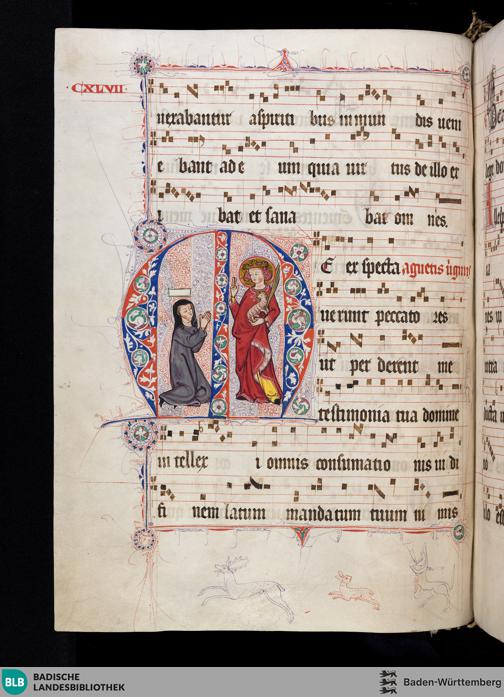 · CXLVII ·
uexabantur a spiriti bus in mun dis ueni
e bant ad e um quia uir tus de illo ex
i bat et sana bat om nes.
E ex specta agnetis uginis
uerunt peccato res
ut per derent me
testimonia tua domine
in tellex i omnis consumatio nis ui di
fi nem latum mandatum tuum ni mis
BLB BADISCHE
LANDESBIBLIOTHEK
Baden-Württemberg